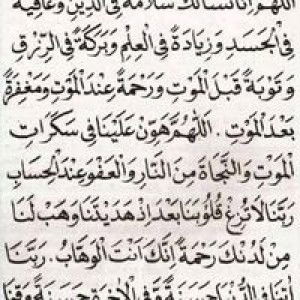 اَللّٰهُمَّ اِنَّا نَسْأَلُكَ سَلَامَةً فِى الدِّيْنِ وَعَافِيَةً
فِى الْجَسَدِ وَزِيَادَةً فِى الْعِلْمِ وَبَرَكَةً فِى الرِّزْقِ
وَتَوْبَةً قَبْلَ الْمَوْتِ وَرَحْمَةً عِنْدَ الْمَوْتِ وَمَغْفِرَةً
بَعْدَ الْمَوْتِ. اَللّٰهُمَّ هَوِّنْ عَلَيْنَا فِى سَكَرَاتِ
الْمَوْتِ وَالنَّجَاةَ مِنَ النَّارِ وَالْعَفْوَ عِنْدَ الْحِسَابِ
رَبَّنَا لَا تُزِغْ قُلُوْبَنَا بَعْدَ اِذْ هَدَيْتَنَا وَهَبْ لَنَا
مِنْ لَدُنْكَ رَحْمَةً اِنَّكَ اَنْتَ الْوَهَّابُ. رَبَّنَا
اٰتِنَا فِى الدُّنْيَا حَسَنَةً وَفِى الْاٰخِرَةِ حَسَنَةً وَقِنَا